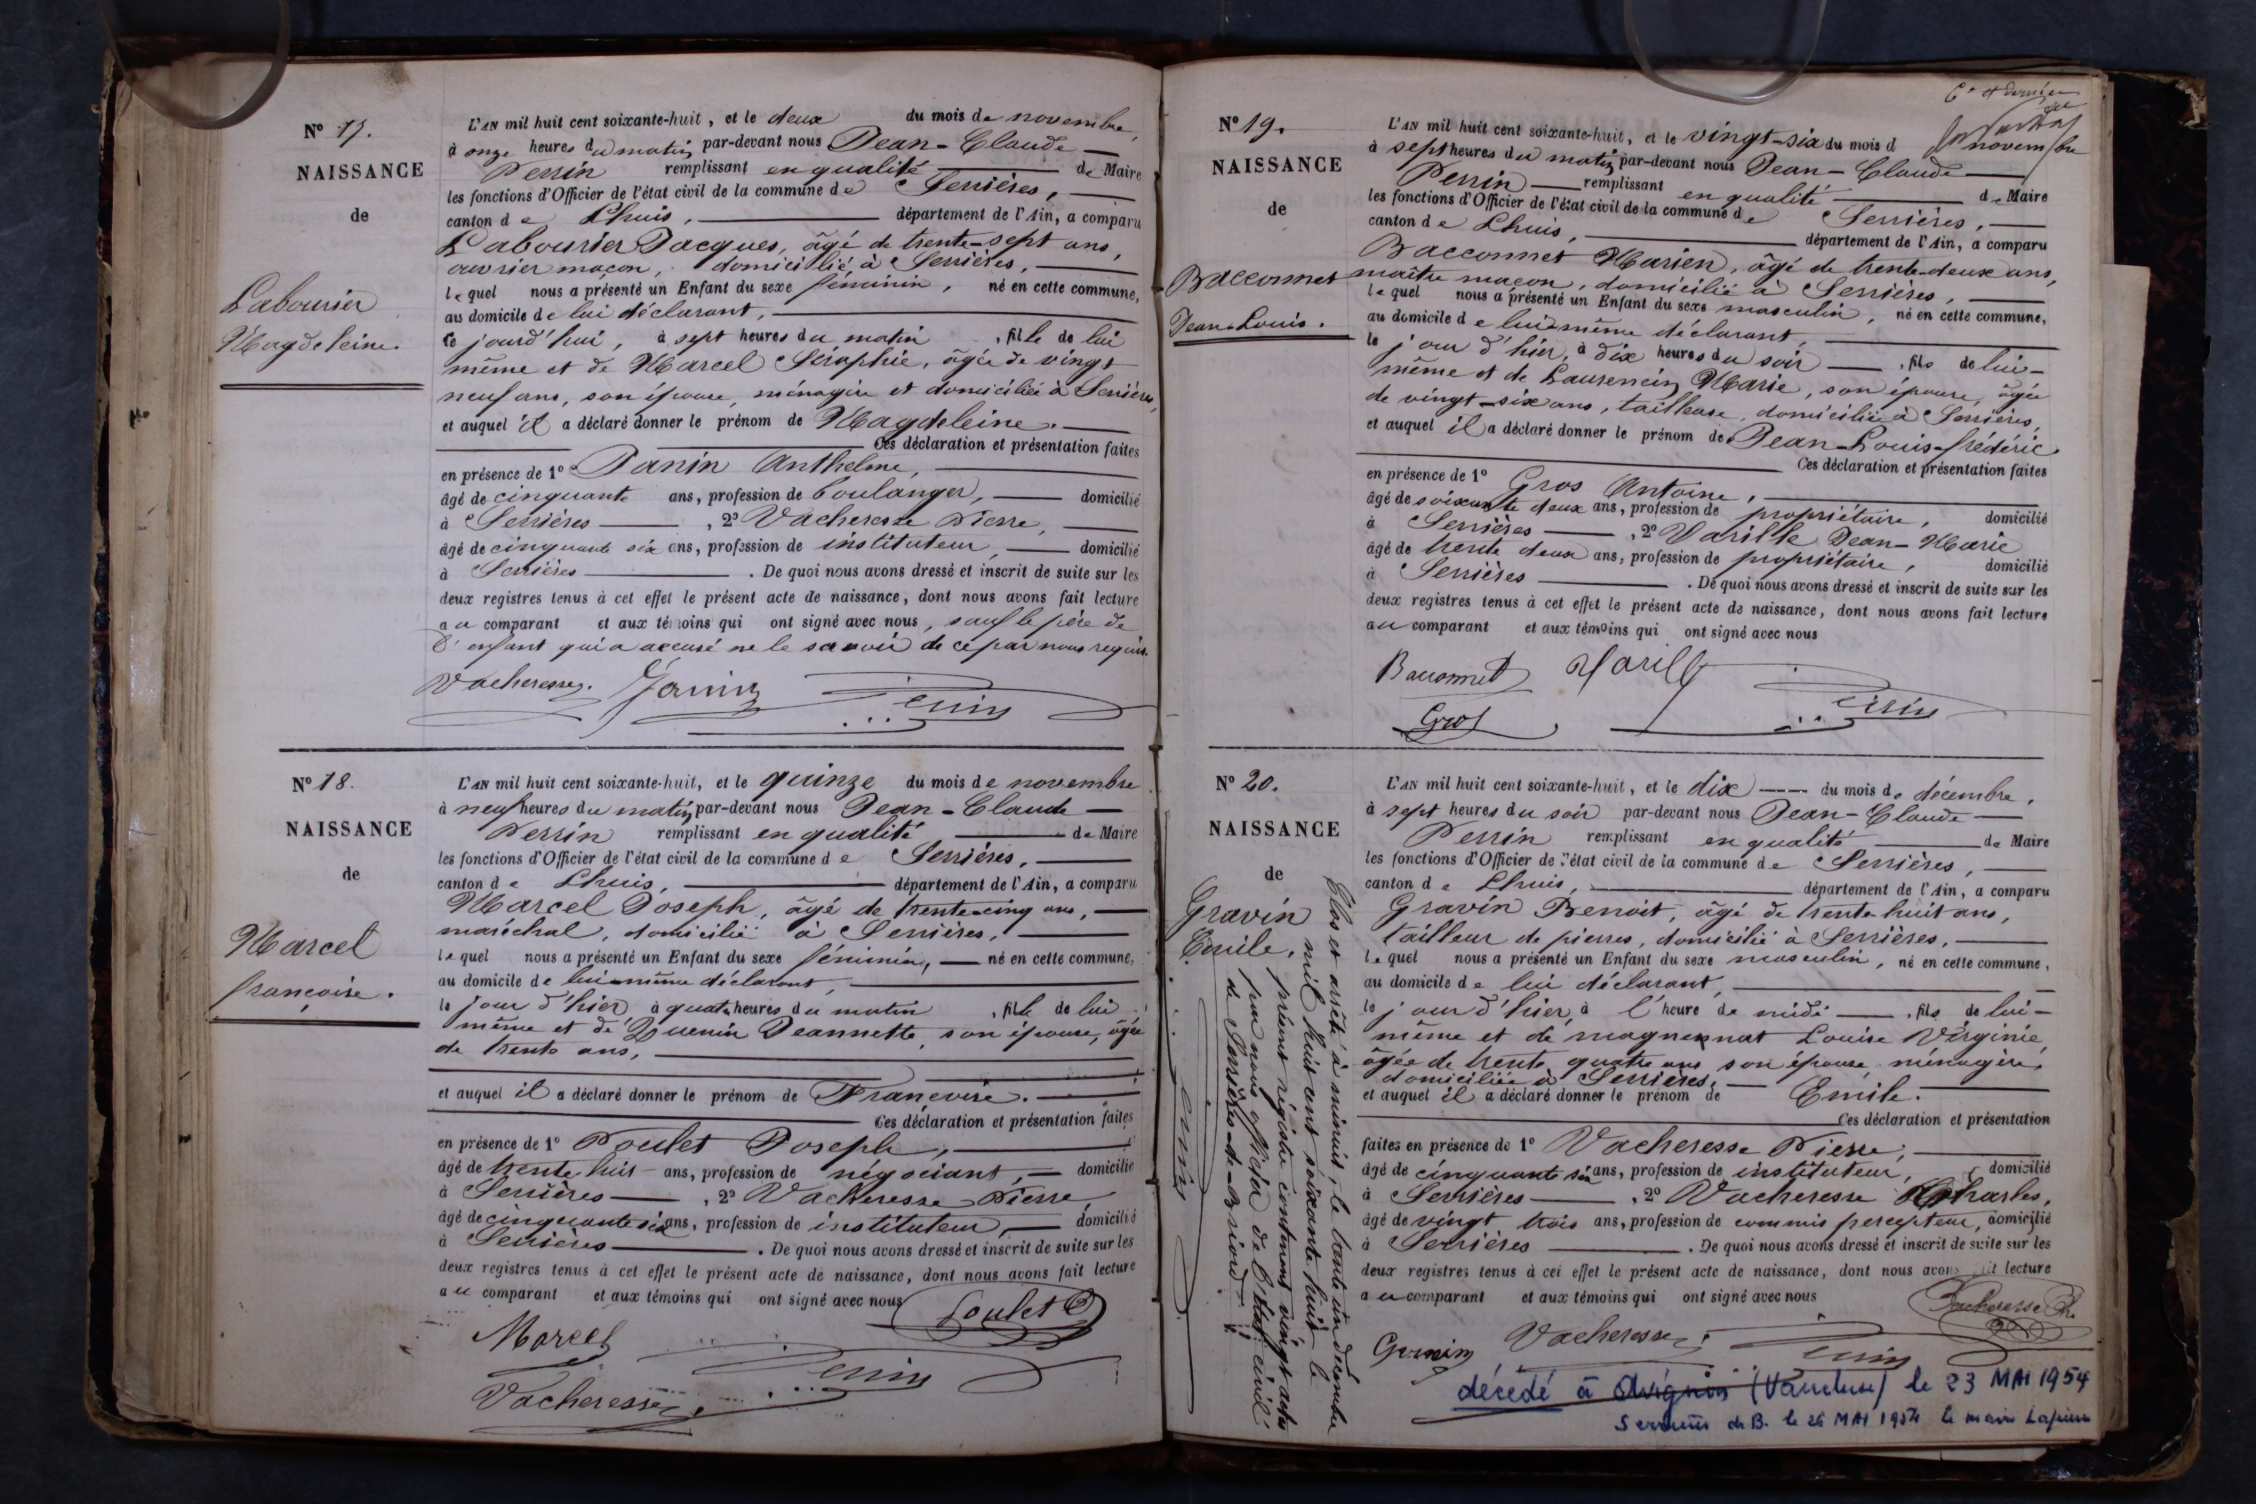 Nº 17.
NAISSANCE
de
Labourier
Magdeleine.
L'AN mil huit cent soixante-huit, et le deux du mois de novembre,
à onze heures du matin par-devant nous Jean-Claude
Perrin remplissant en qualité de Maire
les fonctions d'Officier de l'état civil de la commune de Serrières,
canton de Lhuis, département de l'Ain, a comparu
Labourier Jacques, âgé de trente-sept ans,
ouvrier maçon, domicilié à Serrières,
lequel nous a présenté un Enfant du sexe féminin, né en cette commune,
au domicile de lui déclarant,
ce jourd'hui, à sept heures du matin, fille de lui
même et de Marcel Séraphie, âgée de vingt
neuf ans, son épouse, ménagère et domiciliée à Serrières,
et auquel il a déclaré donner le prénom de Magdeleine.
Ces déclaration et présentation faites
en présence de 1º Janin Anthelme,
âgé de cinquante ans, profession de boulanger, domicilié
à Serrières, 2º Vacheresse Pierre,
âgé de cinquante six ans, profession de instituteur, domicilié
à Serrières. De quoi nous avons dressé et inscrit de suite sur les
deux registres tenus à cet effet le présent acte de naissance, dont nous avons fait lecture
au comparant et aux témoins qui ont signé avec nous, sauf le père de
l'enfant qui a accusé ne le savoir de ce par nous requis.
Vacheresse. Janin Perrin
Nº 18.
NAISSANCE
de
Marcel
françoise.
L'AN mil huit cent soixante-huit, et le quinze du mois de novembre
à neuf heures du matin par-devant nous Jean-Claude
Perrin remplissant en qualité de Maire
les fonctions d'Officier de l'état civil de la commune de Serrières,
canton de Lhuis, département de l'Ain, a comparu
Marcel Joseph, âgé de trente-cinq ans,
maréchal, domicilié à Serrières,
lequel nous a présenté un Enfant du sexe féminin, né en cette commune,
au domicile de lui-même déclarant,
le jour d'hier à quatre heures du matin, fille de lui
même et de Guenin Jeannette, son épouse, âgée
de trente ans,
et auquel il a déclaré donner le prénom de Françoise.
Ces déclaration et présentation faites
en présence de 1º Poulet Joseph,
âgé de trente huit ans, profession de négociant, domicilié
à Serrières, 2º Vacheresse Pierre
âgé de cinquante six ans, profession de instituteur, domicilié
à Serrières. De quoi nous avons dressé et inscrit de suite sur les
deux registres tenus à cet effet le présent acte de naissance, dont nous avons fait lecture
au comparant et aux témoins qui ont signé avec nous
Poulet
Marcel
Perrin
Vacheresse.
6e et dernier
Nº 19.
NAISSANCE
de
Bacconnet
Jean-Louis.
L'AN mil huit cent soixante-huit, et le vingt-six du mois d novembre
à sept heures du matin par-devant nous Jean-Claude
Perrin remplissant en qualité de Maire
les fonctions d'Officier de l'état civil de la commune de Serrières,
canton de Lhuis, département de l'Ain, a comparu
Bacconnet Marien, âgé de trente-deux ans,
maître maçon, domicilié à Serrières,
lequel nous a présenté un Enfant du sexe masculin, né en cette commune,
au domicile de lui-même déclarant,
le jour d'hier, à dix heures du soir, fils de lui-
même et de Laurencin Marie, son épouse, âgée
de vingt-six ans, tailleuse, domiciliée à Serrières,
et auquel il a déclaré donner le prénom de Jean-Louis-frédéric
Ces déclaration et présentation faites
en présence de 1º Gros Antoine,
âgé de soixante deux ans, profession de propriétaire, domicilié
à Serrières, 2º Varille Jean-Marie
âgé de trente deux ans, profession de propriétaire, domicilié
à Serrières. De quoi nous avons dressé et inscrit de suite sur les
deux registres tenus à cet effet le présent acte de naissance, dont nous avons fait lecture
au comparant et aux témoins qui ont signé avec nous
Bacconnet Varille
Perrin
Gros
Nº 20.
NAISSANCE
de
Gravin
Emile.
L'AN mil huit cent soixante-huit, et le dix du mois de décembre,
à sept heures du soir par-devant nous Jean-Claude
Perrin remplissant en qualité de Maire
les fonctions d'Officier de l'état civil de la commune de Serrières,
canton de Lhuis, département de l'Ain, a comparu
Gravin Benoit, âgé de trente huit ans,
tailleur de pierres, domicilié à Serrières,
lequel nous a présenté un Enfant du sexe masculin, né en cette commune,
au domicile de lui déclarant,
le jour d'hier, à l'heure de midi, fils de lui-
même et de magnennat Louise Virginie,
âgée de trente quatre ans son épouse, ménagère,
domiciliée à Serrières,
et auquel il a déclaré donner le prénom de Emile.
Ces déclaration et présentation
faites en présence de 1º Vacheresse Pierre,
âgé de cinquante six ans, profession de instituteur, domicilié
à Serrières, 2º Vacheresse Charles,
âgé de vingt trois ans, profession de commis percepteur, domicilié
à Serrières. De quoi nous avons dressé et inscrit de suite sur les
deux registres tenus à cet effet le présent acte de naissance, dont nous avons fait lecture
au comparant et aux témoins qui ont signé avec nous
Vacheresse Ch.
Gravin Vacheresse. Perrin
décédé à Avignon (Vaucluse) le 23 MAI 1954
Serrières de B. le 26 MAI 1954 le maire
Clos et arrêté à minuit, le trente un décembre
mil huit cent soixante huit le
présent registre contenant vingt actes
par nous officier de l'état civil
de Serrières-de-Briord.
Perrin